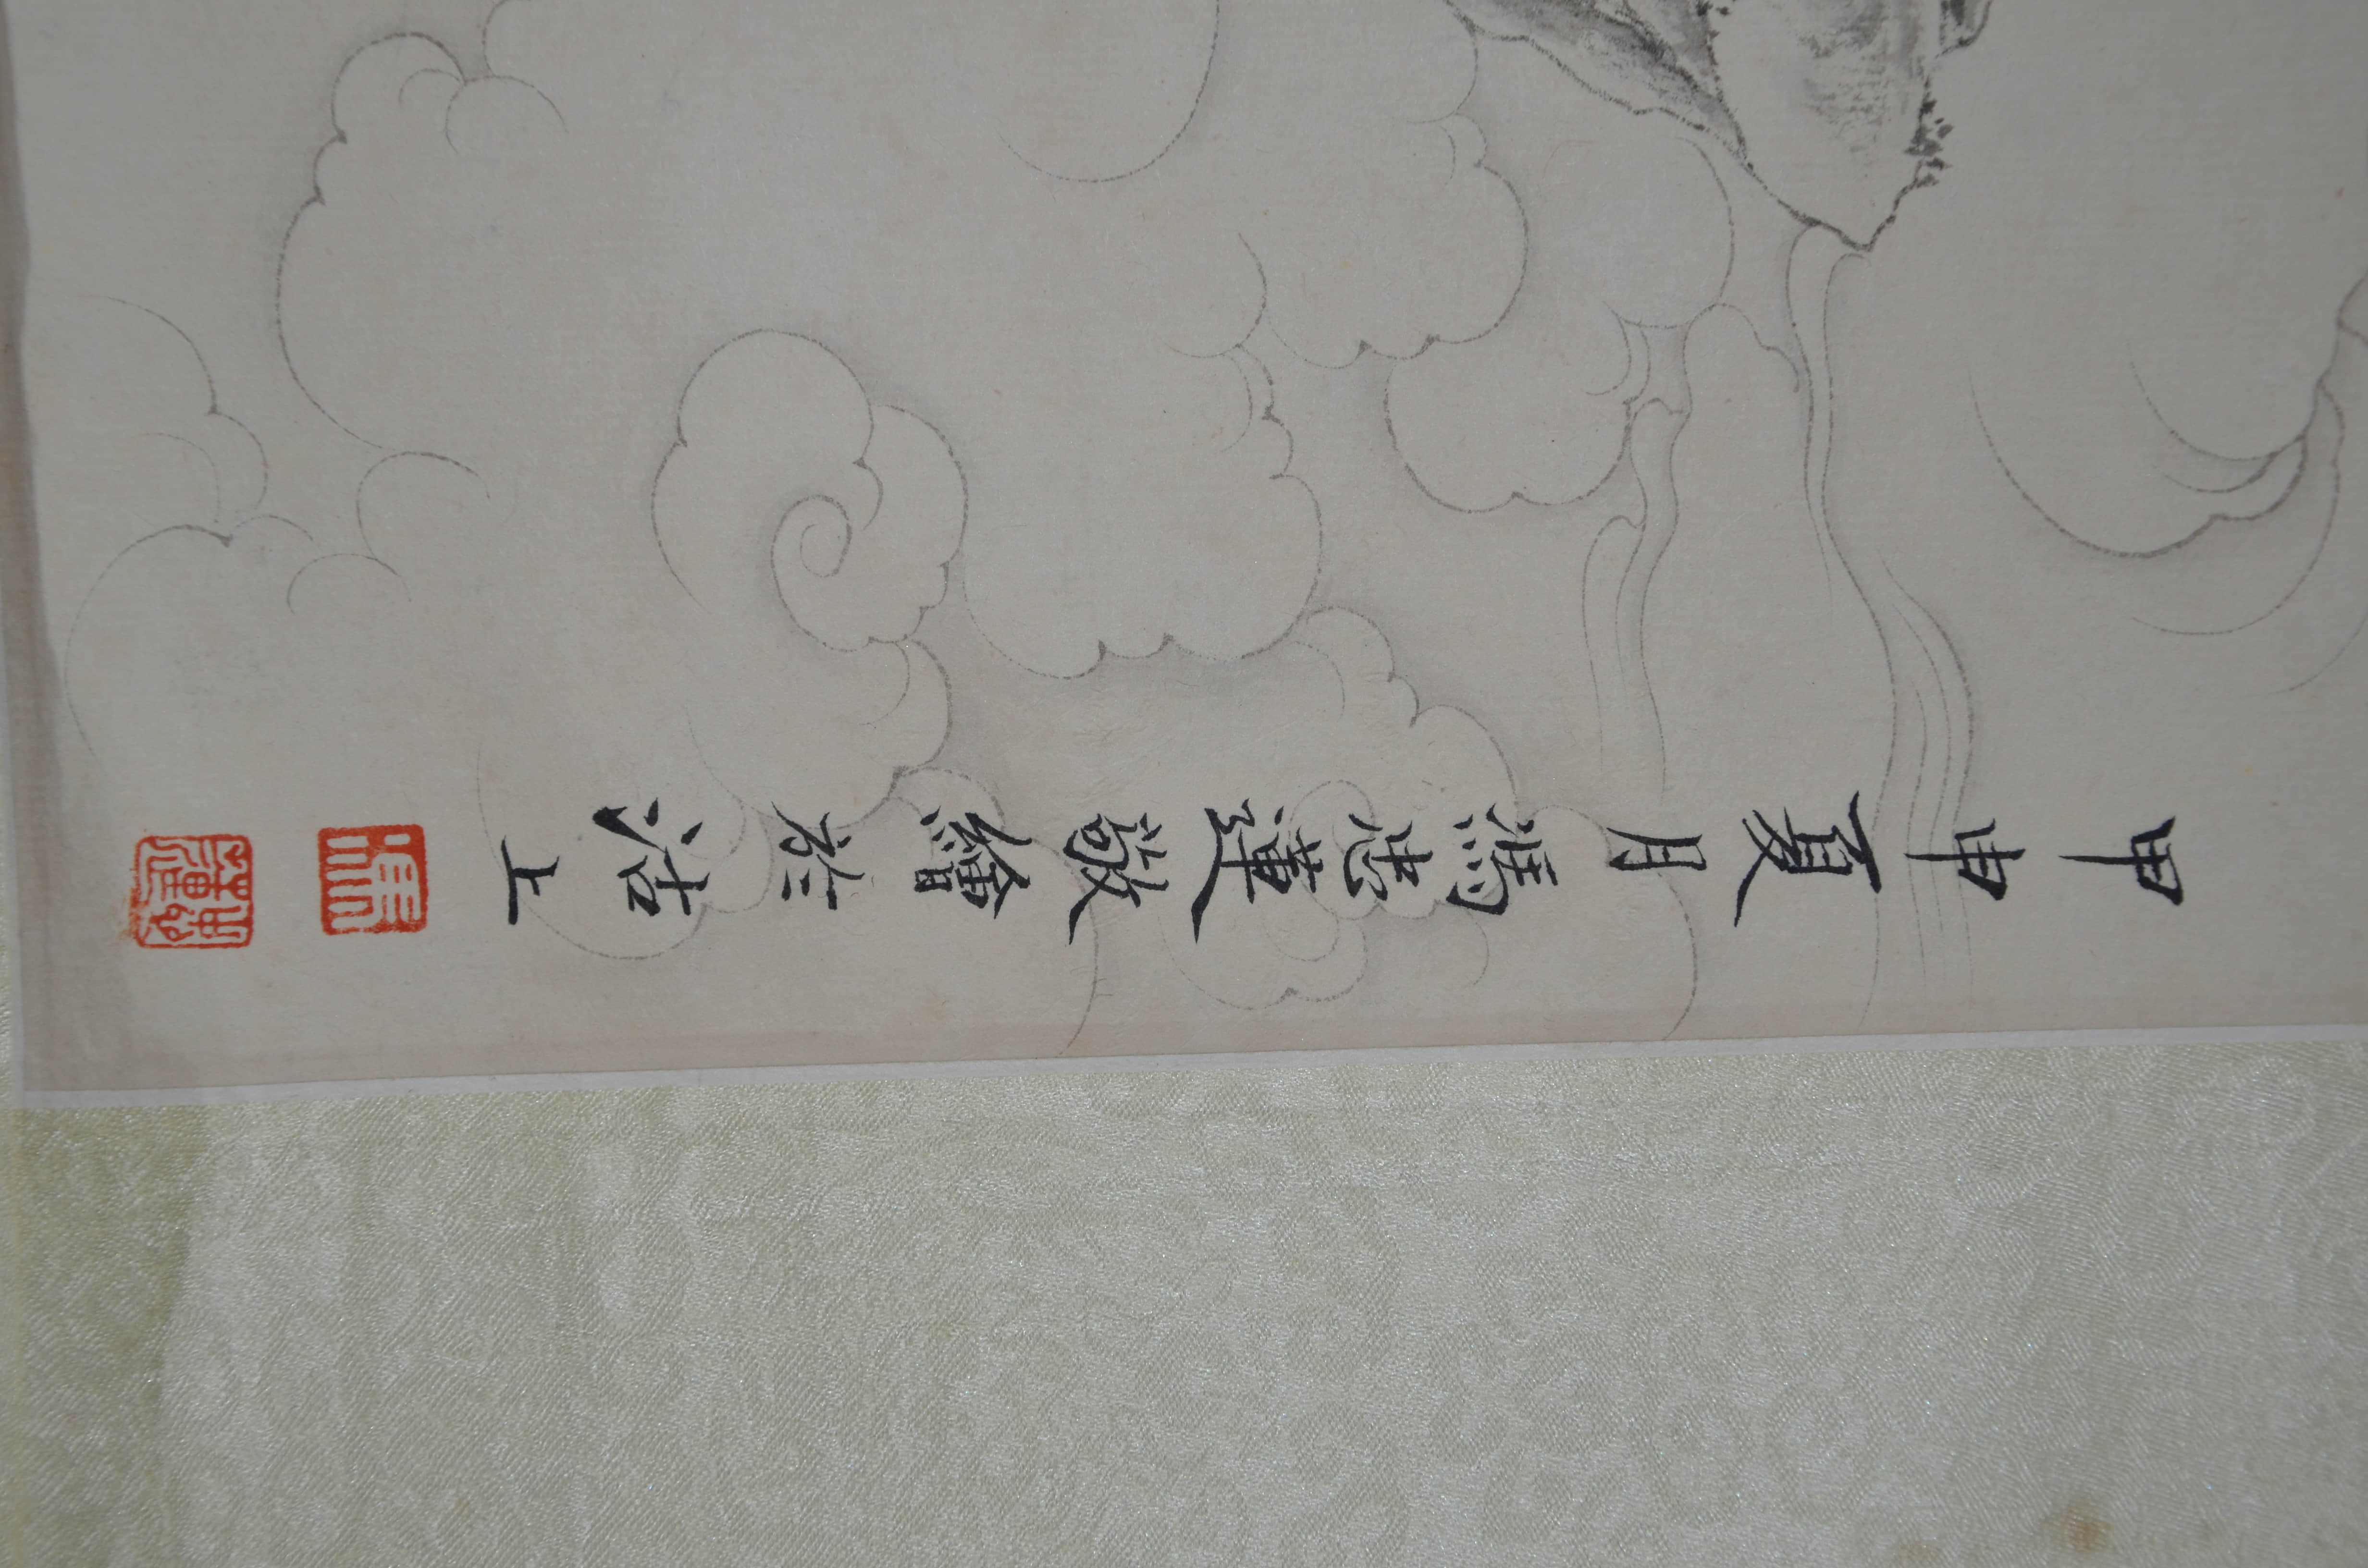 甲申夏月馮忠蓮敬繪於沽上
馮
忠蓮